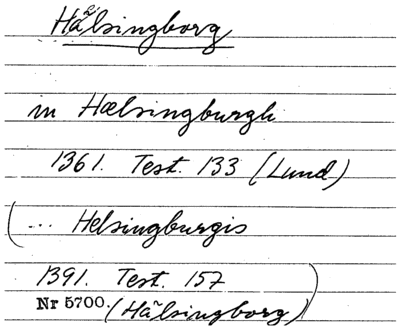 Hälsingborg
in Hælsingburgh
1361. Test. 133 (Lund)
(... Helsingburgis
1391. Test. 157
Nr 5700. (Hälsingborg))